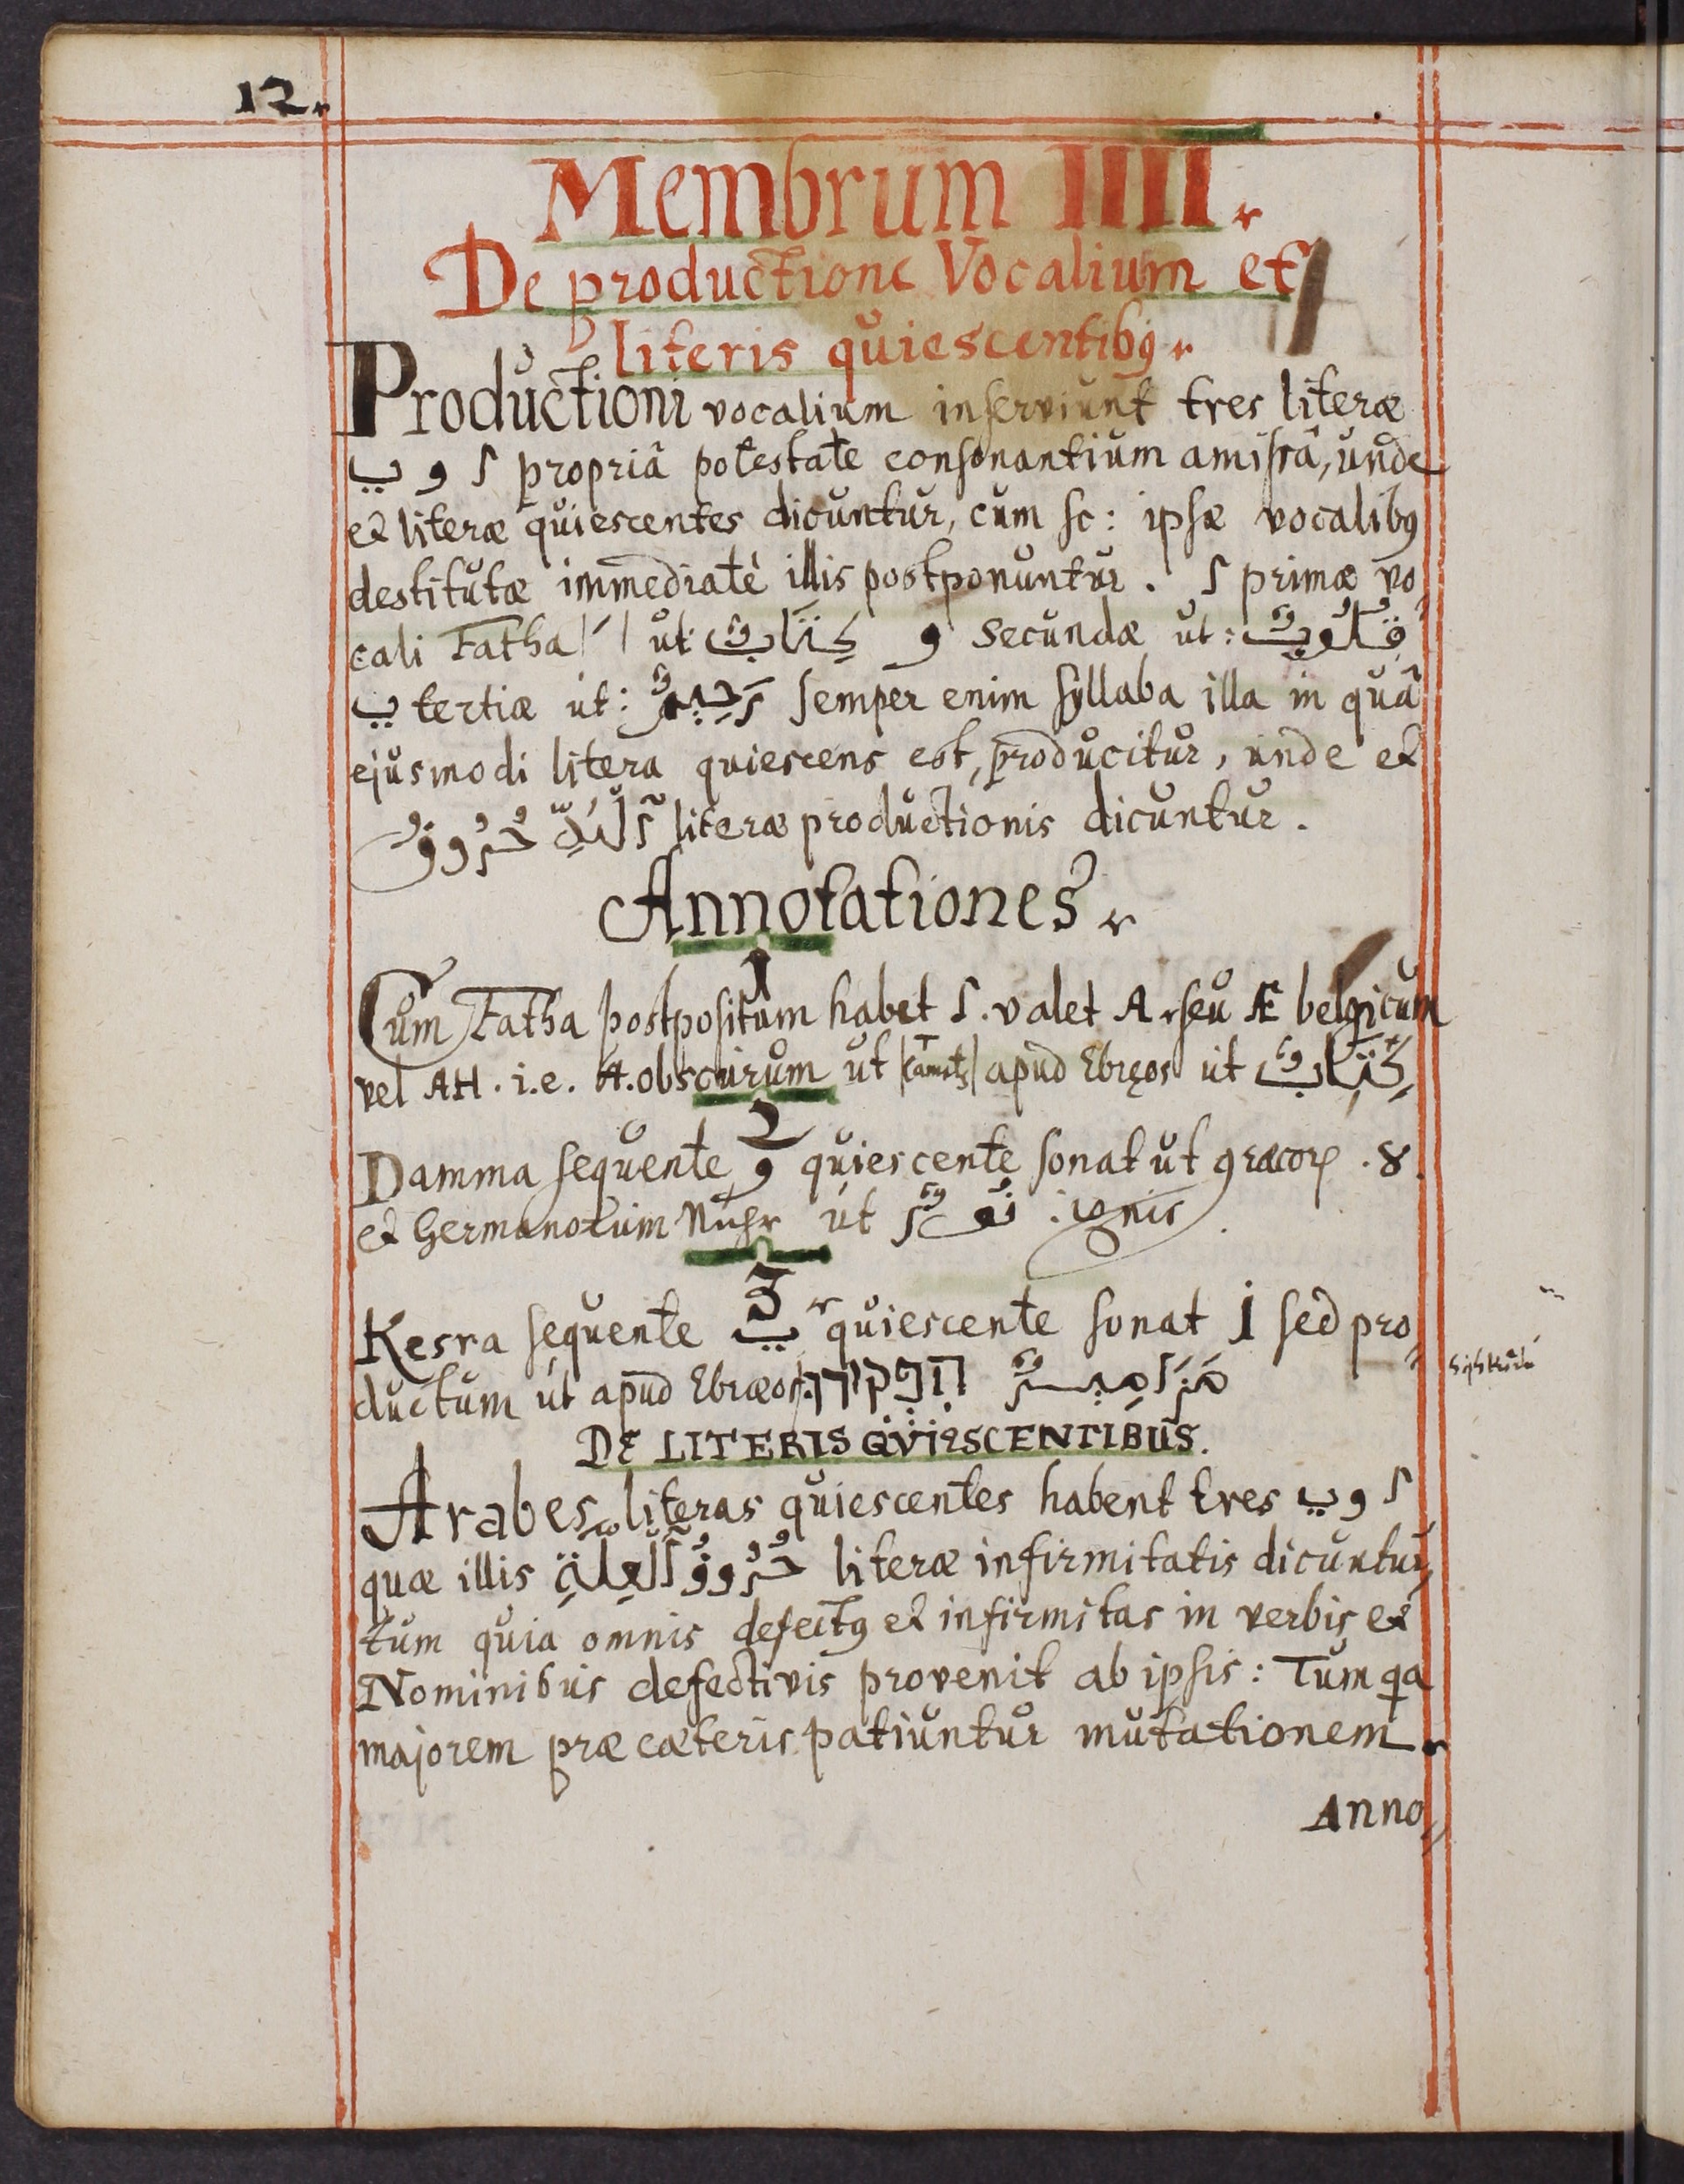 12.
Membrum IIII.
De productione Vocalium et
literis quiescentibꝯ.
Productioni vocalium inserviunt tres literæ
ا و ي propriâ potestate consonantium amissâ, unde
et literæ quiescentes dicuntur, cum sc: ipsæ vocalibꝯ
destitutæ immediatè illis postponuntur. ا primæ vo
cali Fatha ut: كِتَابٌ و secundæ ut: قُلُوبٌ
ي tertiæ ut: رَحِيمٌ semper enim syllaba illa in quâ
ejusmodi litera quiescens est, producitur, unde et
حُرُوفُ آلمَدِّ literæ productionis dicuntur.
Annotationes
1
Cum Fatha postpositum habet ا. valet A seu Æ belgicum
vel AH. i.e. A. obscurum ut Camets apud Ebręos ut كِتَابٌ
2
Damma sequente و quiescente sonat ut græcoꝝ .ȣ.
et Germanorum Nuhr ut نُورٌ ignis.
3
Kesra sequente ي quiescente sonat i sed pro
ductum ut apud Ebræos מַזָامِيرٌ
DE LITERIS QVIESCENTIBUS.
Arabes literas quiescentes habent tres ا و ي
quæ illis حُرُوفُ آلعِلَّةِ literæ infirmitatis dicuntur,
tum quia omnis defectꝯ et infirmitas in verbis et
Nominibus defectivis provenit ab ipsis: Tum qa
majorem præ cæteris patiuntur mutationem.
Anno